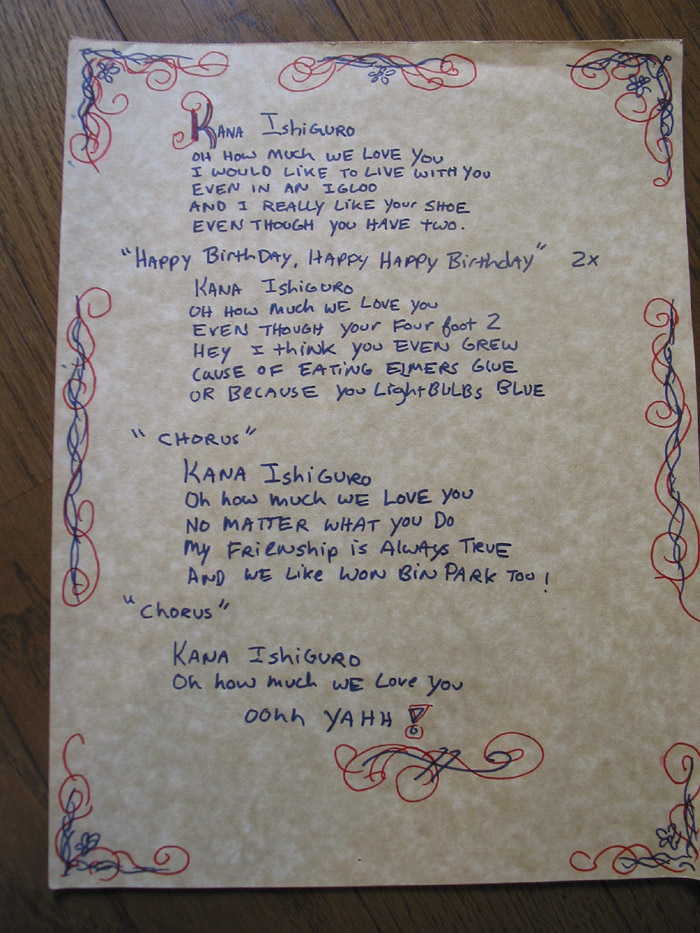 Kana Ishiguro
Oh how much we love you
I would like to live with you
Even in an igloo
And I really like your shoe
Even though you have two.
"Happy Birthday, Happy Happy Birthday" 2x
Kana Ishiguro
Oh how much we love you
Even though your four foot 2
Hey I think you even grew
Cause of eating Elmers glue
Or because you lightbulbs blue
"Chorus"
Kana Ishiguro
Oh how much we love you
No matter what you do
My frienship is always true
And we like Won Bin Park too!
"Chorus"
Kana Ishiguro
Oh how much we love you
Oohh Yahh!